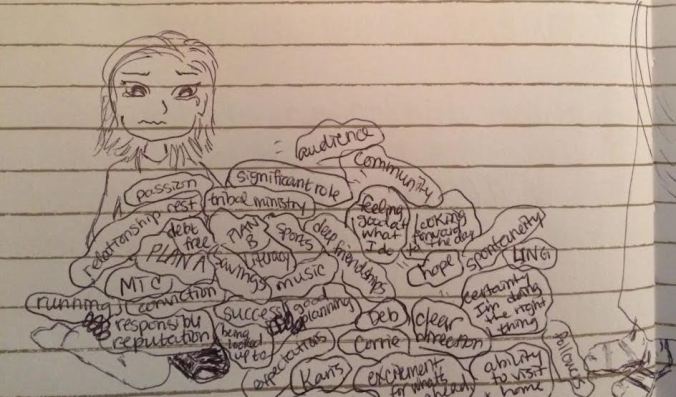 audience
community
passion
significant role
rest
tribal ministry
relationship
feeling
good at
what
I do
looking
forward to
the day
debt
free
PLAN
B
sports
deep friendships
spontaneity
PLAN A
literacy
savings
music
hope
LING
MTC
conviction
certainty
I'm doing
the right
thing
running
success
good
planning
Deb
clear
direction
responsible
reputation
being
looked
up to
expectations
Corrie
followers
Karis
excitement
for what's
ahead
ability
to visit
home